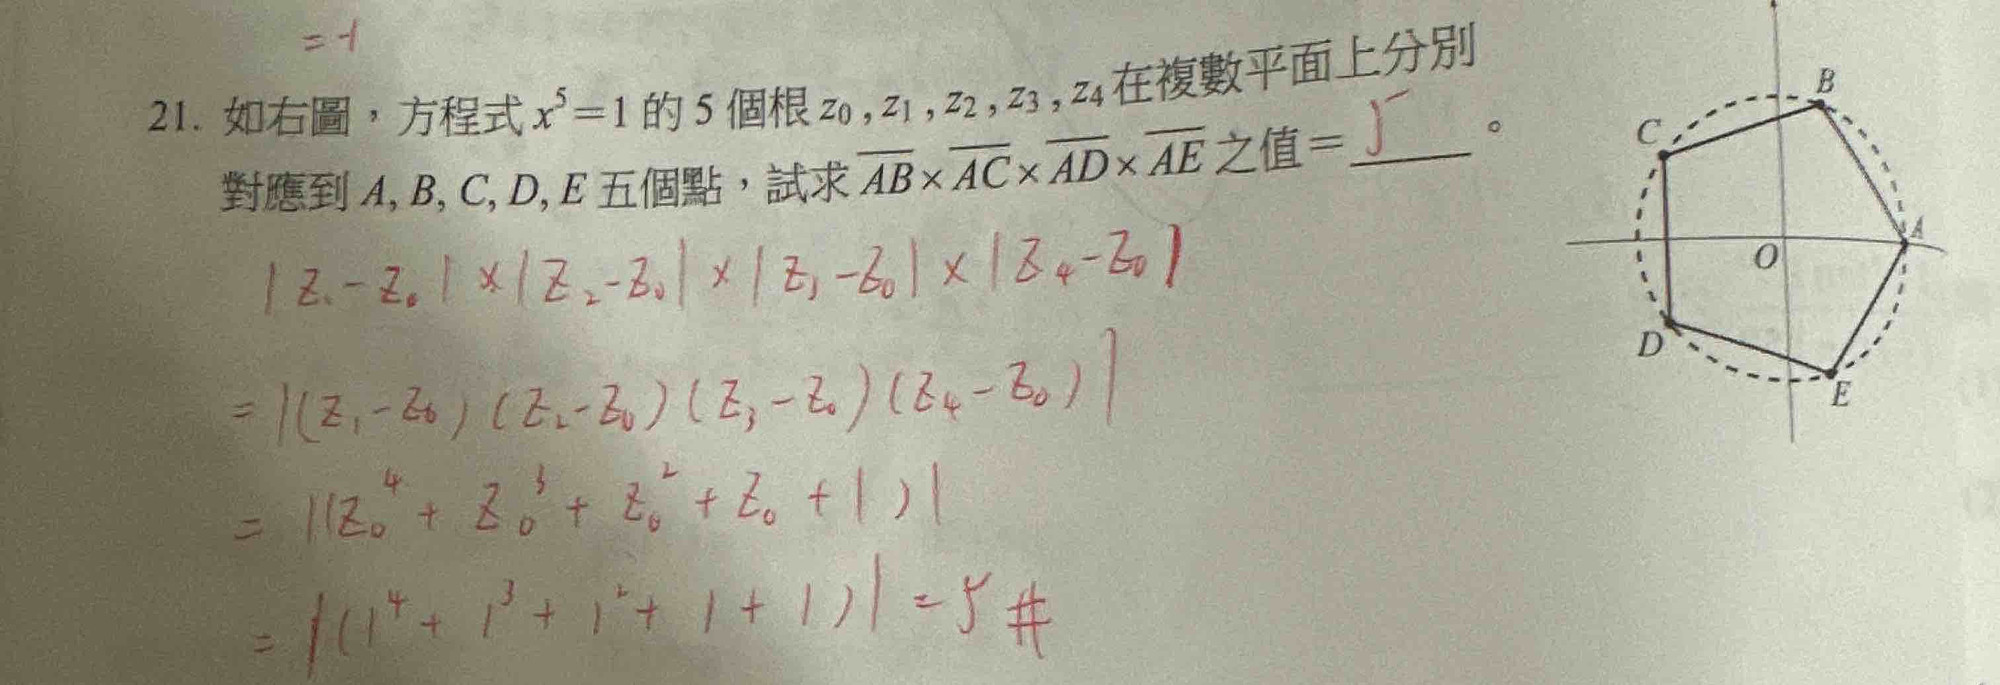 =-1
21. 如右圖，方程式 x⁵=1 的 5 個根 z₀, z₁, z₂, z₃, z₄ 在複數平面上分別
對應到 A, B, C, D, E 五個點，試求 AB×AC×AD×AE 之值= 5 。
|z₁-z₀|×|z₂-z₀|×|z₃-z₀|×|z₄-z₀|
=|(z₁-z₀)(z₂-z₀)(z₃-z₀)(z₄-z₀)|
=|(z₀⁴+z₀³+z₀²+z₀+1)|
=|(1⁴+1³+1²+1+1)|=5#
B
C
A
O
D
E